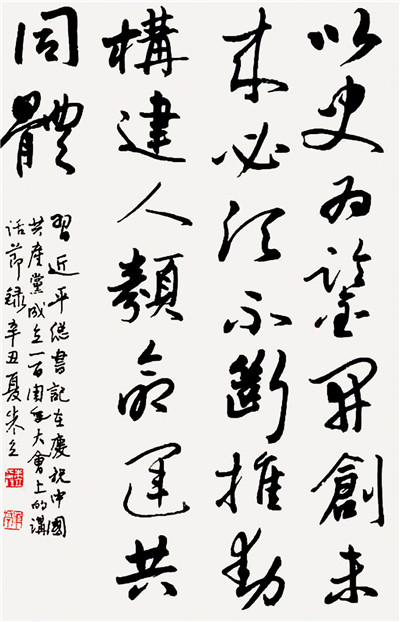 以史为鑒開創未
来必須不斷推動
構建人類命運共
同體
習近平总書記在慶祝中國
共產黨成立一百周年大會上的講
話節録辛丑夏